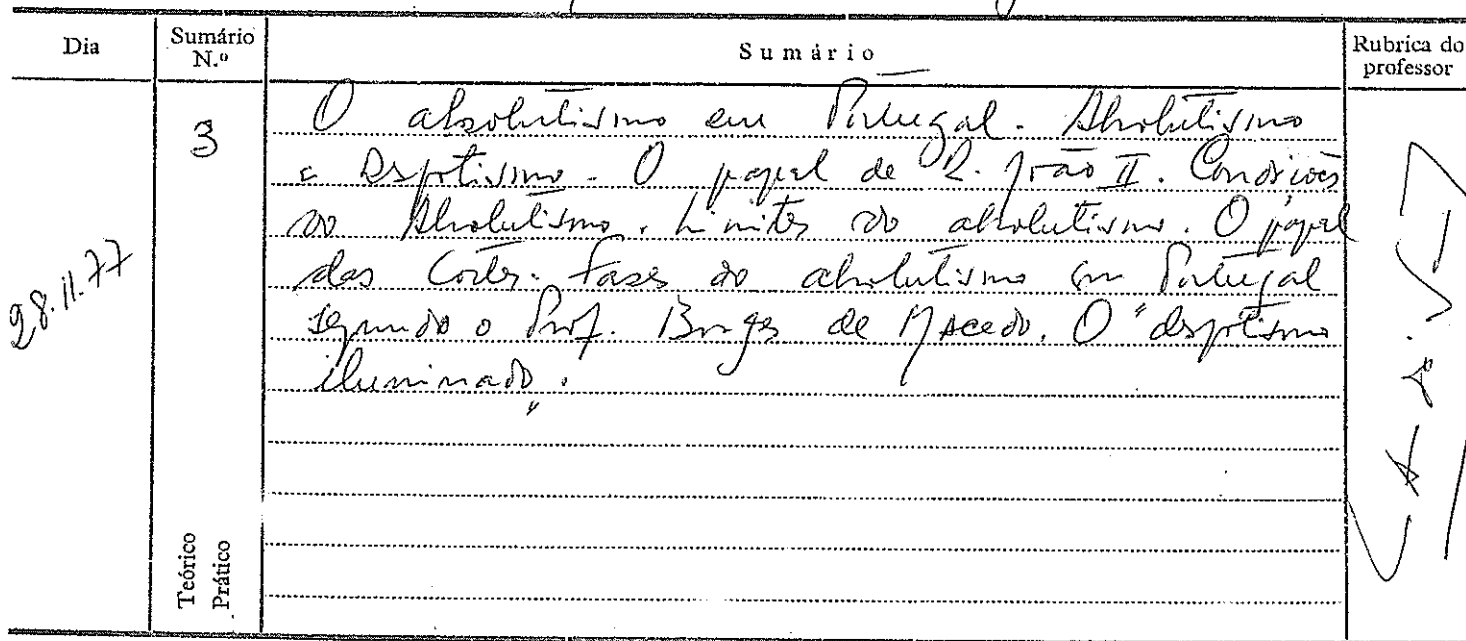 Dia Sumário N.º Sumário Rubrica do professor
28.11.77
3
O absolutismo em Portugal. Absolutismo
e Despotismo. O papel de D. João II. Condições
do Absolutismo. Limites do absolutismo. O papel
das Cortes. Fases do absolutismo em Portugal
segundo o Prof. Borges de Macedo. O "despotismo
iluminado".
Teórico
Prático